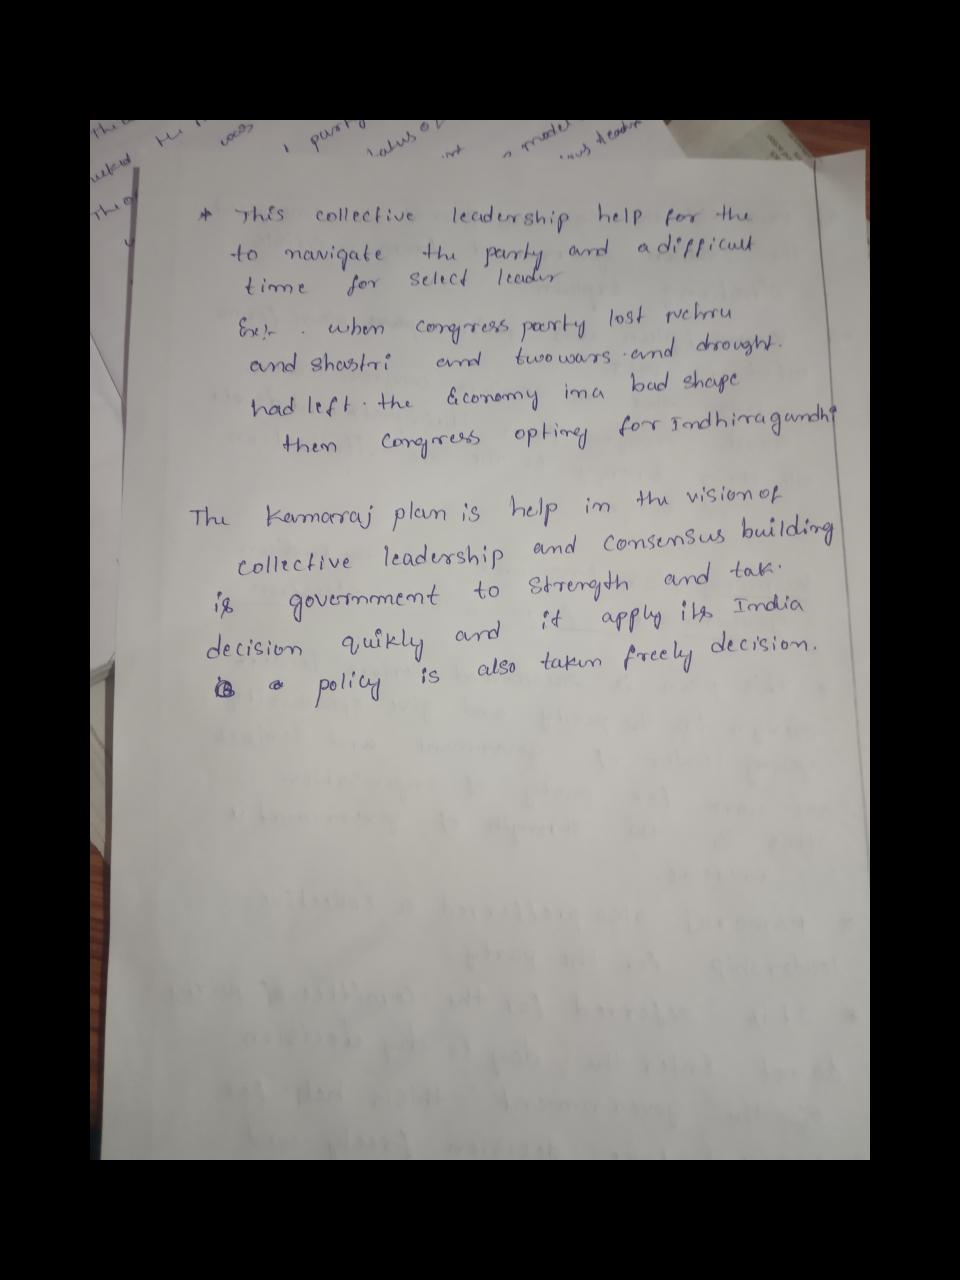 * This collective leadership help for the
to navigate the party and a difficult
time for select leader
Ex:- . when congress party lost nehru
and shastri and two wars and drought.
had left. the Economy in a bad shape
then congress opting for Indhiragandhi
The Kamaraj plan is help in the vision of
collective leadership and consensus building
is government to strength and tak.
decision quikly and it apply its India
a policy is also taken freely decision.